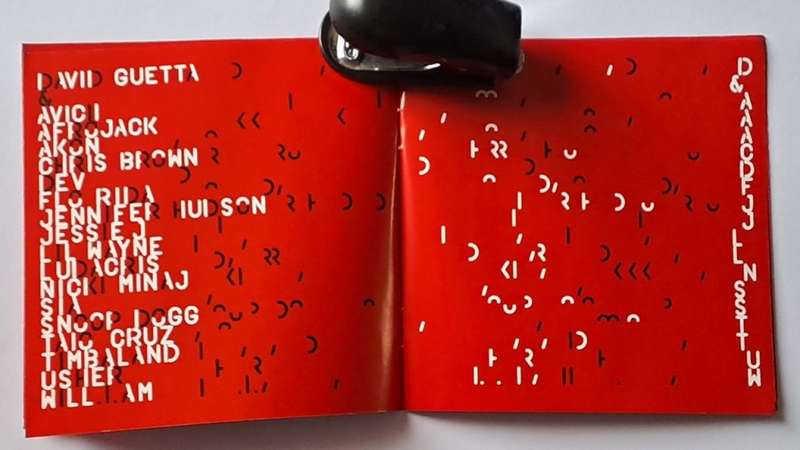 DAVID GUETTA
&
AVICII
AFROJACK
AKON
CHRIS BROWN
DEV
FLO RIDA
JENNIFER HUDSON
JESSIE J
LIL WAYNE
LUDACRIS
NICKI MINAJ
SIA
SNOOP DOGG
TAIO CRUZ
TIMBALAND
USHER
WILL.I.AM
D
&
A
A
A
C
D
F
J
J
L
L
N
S
S
T
T
U
W